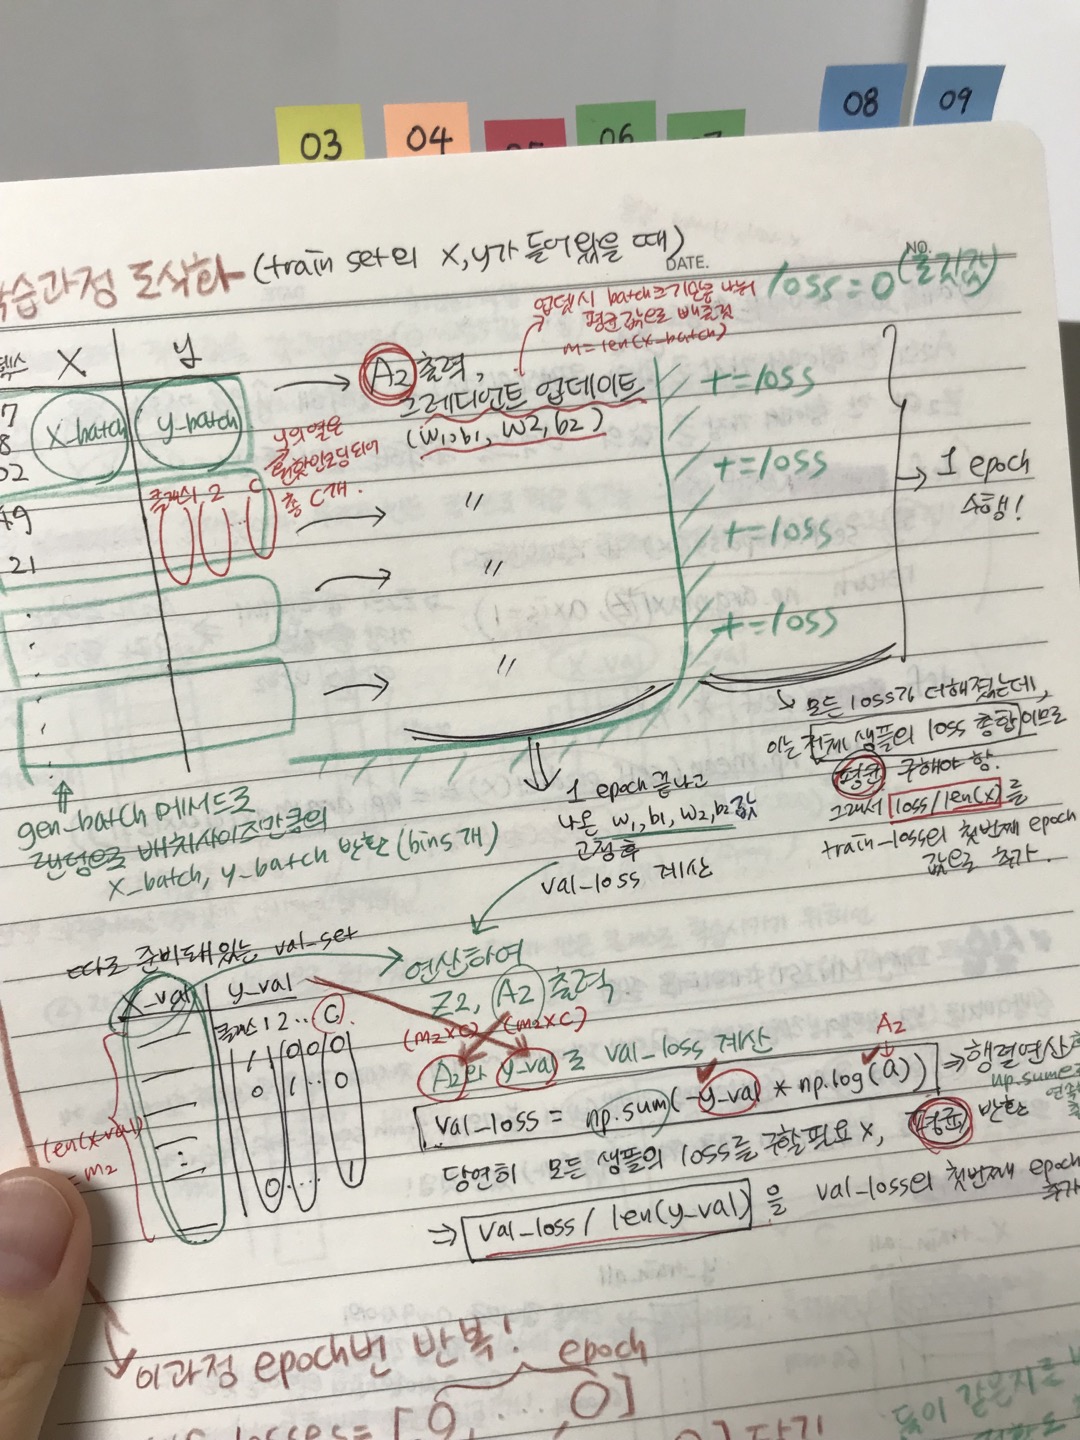 03
04
05
06
07
08
09
학습과정 도식화 (train set의 X, y가 들어왔을 때)
NO.
DATE.
loss = 0
업뎃시 batch크기만큼 나눠
평균값으로 배출됨
m = len(x_batch)
X
y
A2 출력,
그레디언트 업데이트
(W1, b1, W2, b2)
7
8
02
49
21
X_batch
y_batch
y의 열은
원핫인코딩되어
총 C개.
클래스1 2 C
〃
〃
〃
+= loss
+= loss
+= loss
+= loss
→ 1 epoch
수행!
gen_batch 메서드로
랜덤으로 배치사이즈만큼의
X_batch, y_batch 반환 (bins 개)
1 epoch 끝나고
나온 W1, b1, W2, b2 값
고정 후
val_loss 계산
모든 loss가 더해졌는데,
이는 전체 샘플의 loss 총합이므로
평균 구해야 함.
그래서 loss/len(x)를
train_loss의 첫번째 epoch
값으로 추가.
따로 준비돼있는 val_set
X_val
y_val
클래스 1 2 ·· C
1 0 0 0
0 1 ··· 0
0 ··· 1
len(x_val)
= m2
연산하여
Z2, A2 출력.
(m2×C) (m2×C)
A2와 y_val로 val_loss 계산
A2
val_loss = np.sum(-y_val * np.log(a)) ⇒ 행렬연산
np.sum
당연히 모든 샘플의 loss를 구할필요 X, 평균 반환
⇒ val_loss / len(y_val) 을 val_loss의 첫번째 epoch
추가
이과정 epoch번 반복!
epoch
losses = [0, ··· , 0]
담기
둘이 같은지를